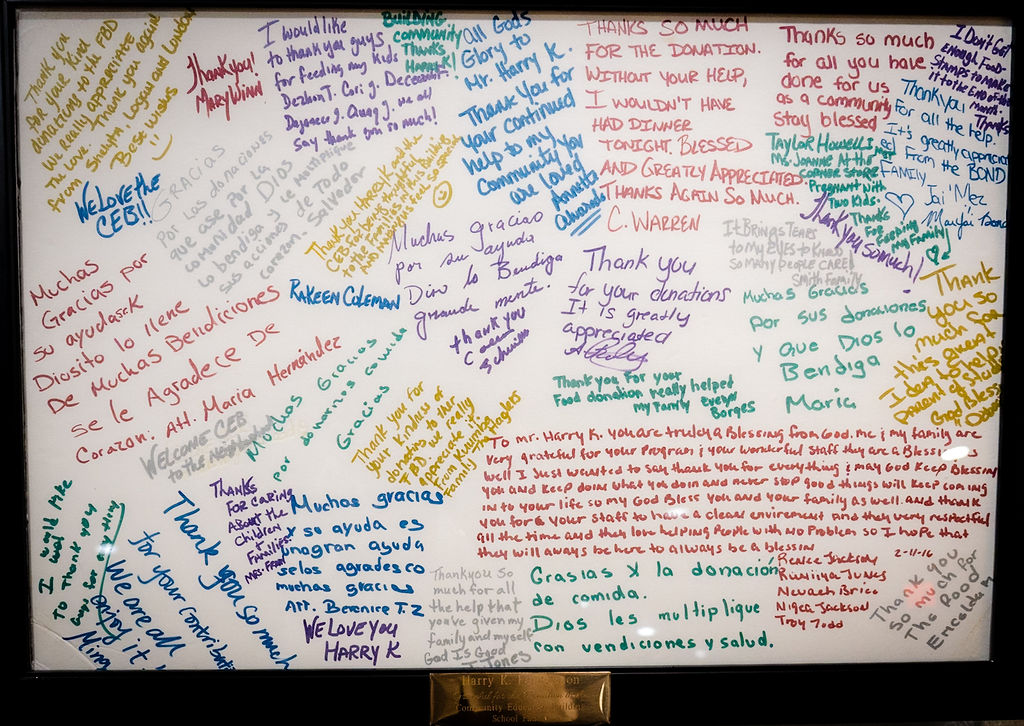 Thank you
for your kind
donations to the FBD
We really appreciative
the love. Thank you again
from Shawn Logan and London
Best wishes
Thank you!
Mary Winn
I would like
to thank you guys
for feeding my kids
say thank you so much!
Building
community
Thanks
Harry K!
All Gods
Glory to
Mr. Harry K.
Thank You for
your continued
help to my
Community You
are loved
Annette
Alvarado
THANKS SO MUCH
FOR THE DONATION.
WITHOUT YOUR HELP,
I WOULDN'T HAVE
HAD DINNER
TONIGHT. BLESSED
AND GREATLY APPRECIATED.
THANKS AGAIN SO MUCH.
C. WARREN
Thanks so much
for all you have
done for us
as a community
stay blessed
I Don't Get
enough Food
Stamps to make
it to the end of the
month.
Thanks
Thank you
For all the help.
It's greatly appreciat
ed From the BOND
FAMILY
Taylor Howell is just
Ms. Joanne At the
corner store
Pregnant with
Two kids.
Thanks
For keeping
my family
Thank you so much!
We Love the
CEB!!
Gracias
Por las donaciones
que ase por la
comunidad Dios
bendiga y les multiplique
sus acciones de todo
corazon. Salvador
Muchas gracias
por su ayuda
Dios lo Bendiga
grande mente.
thank you
It Brings Tears
to my eyes to know
so many people care!
Smith Family
Muchas
Gracias por
su ayuda
Diosito lo llene
De Muchas Bendiciones
se le Agradece De
Corazon. Att. Maria Hernández
Rakeen Coleman
Thank you
for your donations
It is greatly
appreciated
Muchas Gracias
por sus donaciones
y que Dios lo
Bendiga
Maria
Thank
you so
much for
Welcome CEB
to the Neighborhood
Muchas Gracias
por donarnos comida
Gracias
Thank you for
your kindness of
donating to the
FBD. We really
appreciate it
Family
Thank you for your
Food donation really helped
my family Evelyn
Borges
To mr. Harry K. you are truley a Blessing from God. me & my family are
very grateful for your Program & your wonderful staff they are a Blessing as
well I Just wanted to say thank you for everything & may God keep Blessing
you and keep doing what you doin and never stop good things will keep coming
in to your life so my God Bless you and your family as well. and thank
you for & your staff to have a clean enviroment and they very respectful
all the time and they love helping People with no Problem so I hope that
they will always be here to allways be a blessin
Renee Jackson
2-11-16
Nevaeh Brice
Nigea Jackson
Troy Todd
I would like
to thank you
guys for everything
We are all
enjoy it!
Ming
Thank you so much
for your contribution
Thanks
for caring
about the
children
+
Families
Muchas gracias
y so ayuda es
unagran ayuda
selos agradesco
muchas gracias
Att. Berenice T.Z
We Love You
Harry K
Thank you so
much for all
the help that
you've given my
family and myself
God Is Good
T Jones
Grasias X la donación
de comida.
Dios les multiplique
con vendiciones y salud.
Thank you
so much for
The Food
Harry K.
School